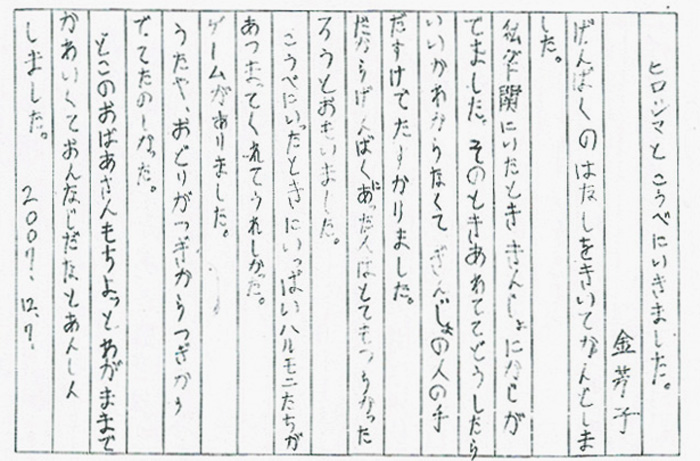 ヒロシマとこうべにいきました。
金芳子
げんばくのはなしをきいてかんどしま
した。
私が下関にいたとききんじょにかじが
でました。そのときあわててどうしたら
いいかわからなくて きんじょの人の手
だすけでたすかりました。
だからげんばくにあった人はとてもつらかった
ろうとおもいました。
こうべにいったときにいっぱいハルモニたちが
あつまってくれてうれしかった。
ゲームがありました。
うたや、おどりがつぎからつぎから
でてたのしかった。
どこのおばあさんもちよっとわがままで
かあいくておんなじだなとあんしん
しました。 2007.12.7.